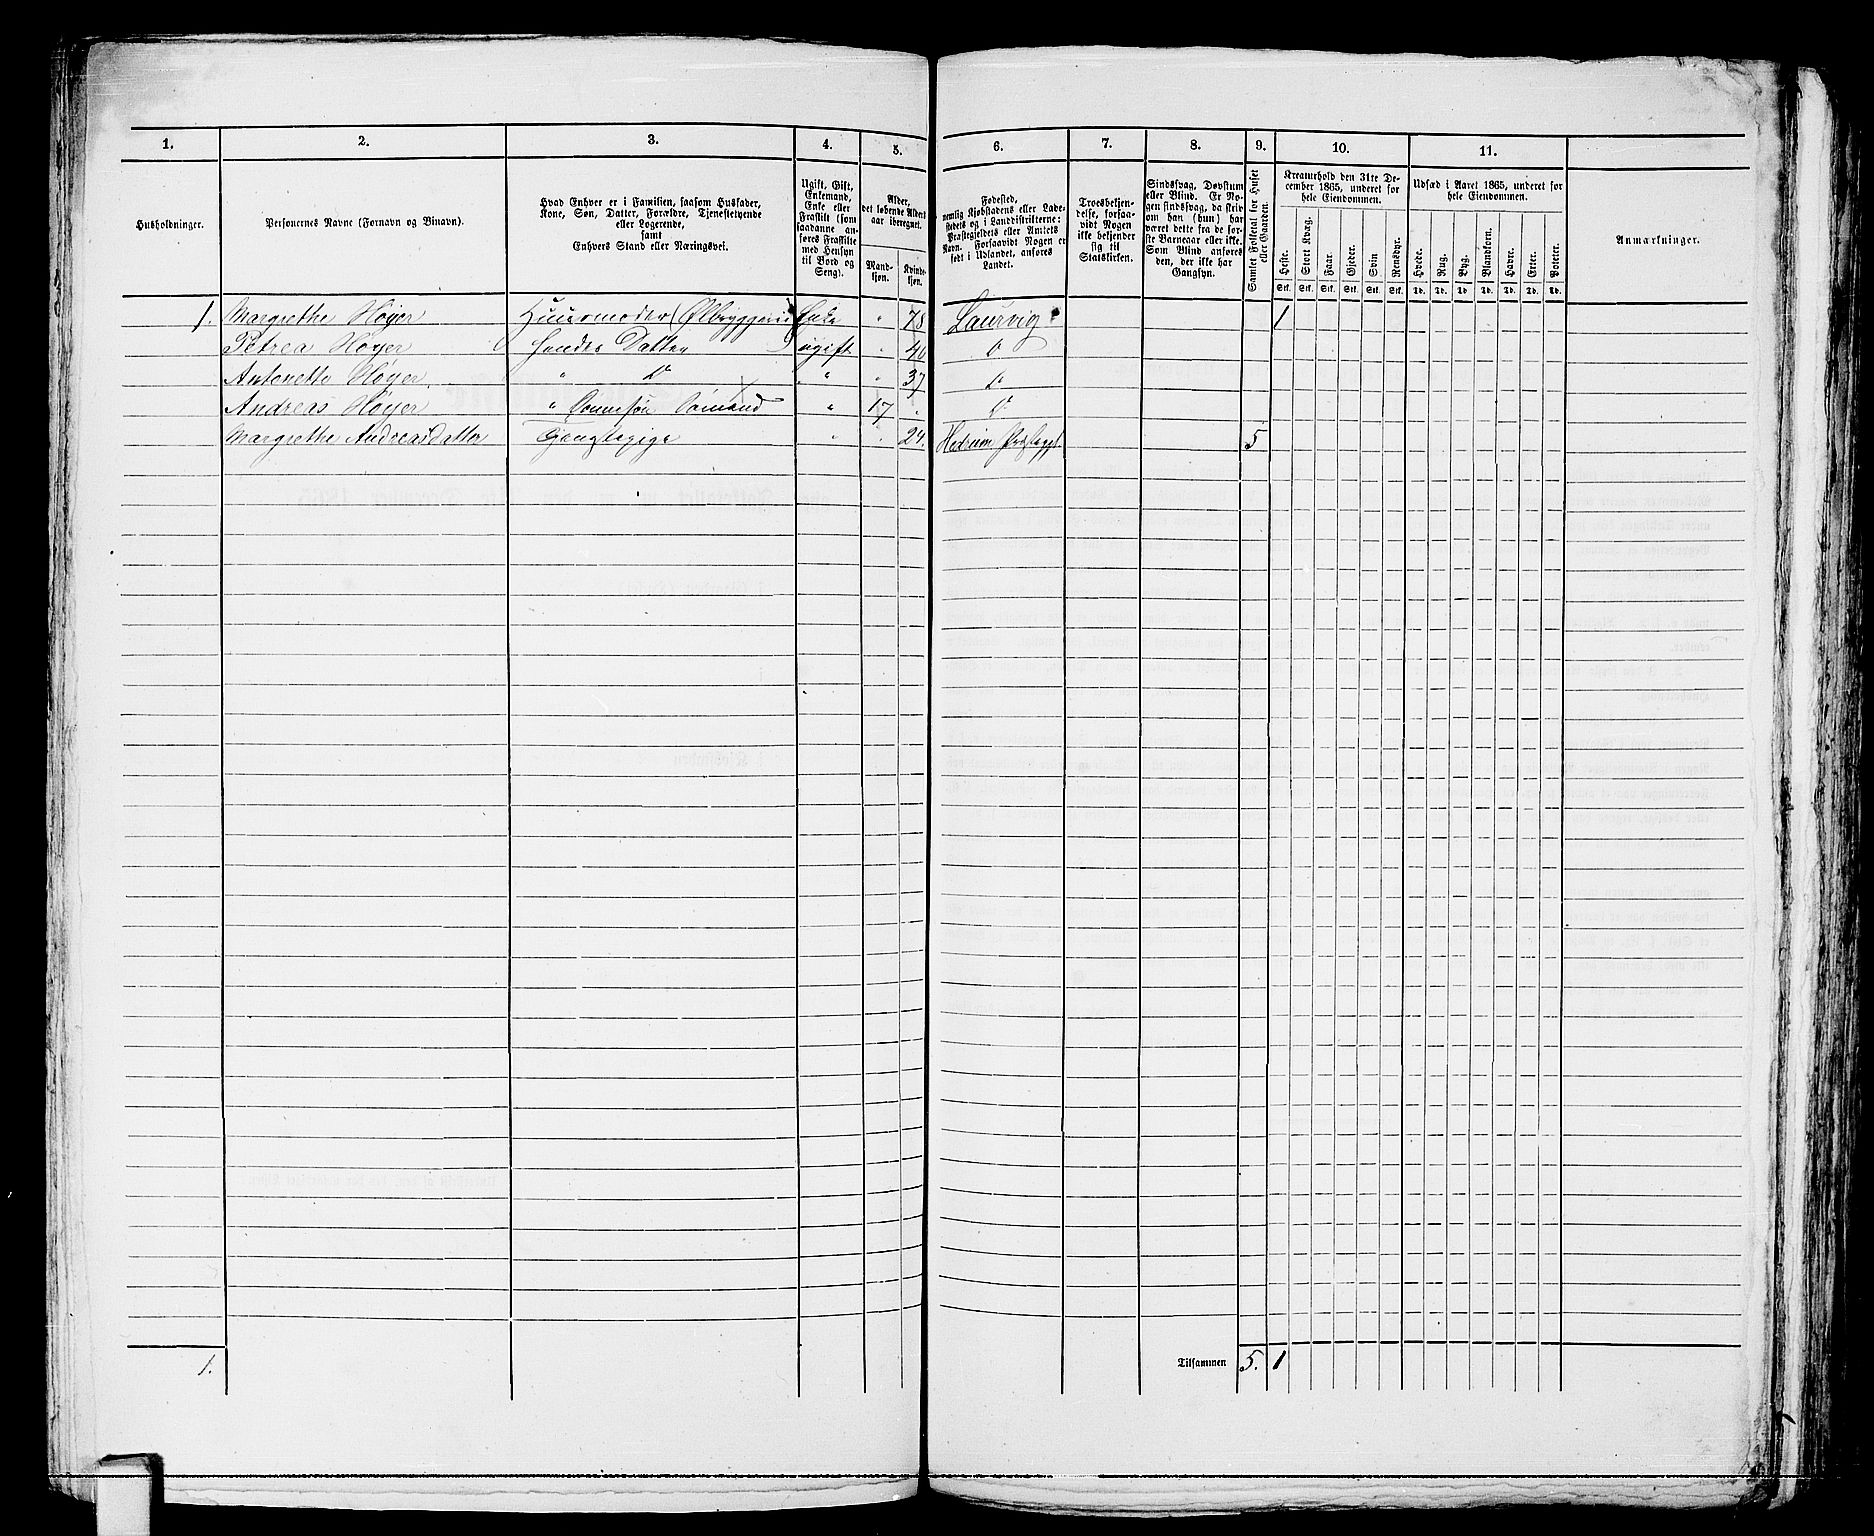 1. 2. 3. 4. 5. 6. 7. 8. 9. 10. 11.
Husholdninger.
Personernes Navne (Fornavn og Binavn).
Hvad Enhver er i Familien, saasom Husfader,
Kone, Søn, Datter, Forældre, Tjenestetyende
eller Logerende,
samt
Enhvers Stand eller Næringsvei.
Ugift, Gift,
Enkemand,
Enke eller
Fraskilt (som
saadanne an-
føres Fraskilte
med Hensyn
til Bord og
Seng).
Alder,
det løbende Alders-
aar iberegnet.
Mand-
kjøn.
Kvinde-
kjøn.
Fødested,
nemlig Kjøbstadens eller Lade-
stedets og i Landdistrikterne:
Præstegjeldets eller Amtets
Navn. Forsaavidt Nogen er
født i Udlandet, anføres
Landet.
Troesbekjen-
delse, forsaa-
vidt Nogen
ikke bekjender
sig til
Statskirken.
Sindssvag, Døvstum
eller Blind. Er No-
gen sindssvag, da skriv
om han (hun) har
været dette fra de før-
ste Barneaar eller ikke.
Som Blind anføres
den, der ikke har
Gangsyn.
Samlet Folketal for Huset
eller Gaarden.
Kreaturhold den 31te De-
cember 1865, underet for
hele Eiendommen.
Heste. Stort Kvæg. Faar. Gjeder. Svin Rensdyr.
Stk. Stk. Stk. Stk. Stk. Stk.
Udsæd i Aaret 1865, underet for
hele Eiendommen.
Hvede. Rug. Byg. Blandkorn. Havre. Erter. Poteter.
Td. Td. Td. Td. Td. Td. Td.
Anmærkninger.
1. Margrethe Høyer Huusmoder (Ølbryggerie) Enke " 78 Laurvig 1
Petrea Høyer hendes Datter ugift " 40 D°
Antonette Høyer. " D° " " 37 D°
Andreas Høyer " Sønnesøn Sømand " 17 " D°
Margrethe Andreasdatter Tjenstepige " " 24. Hedrum Præstegjl. 5
1. Tilsammen 5. 1